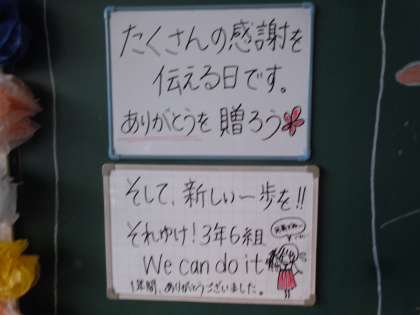 たくさんの感謝を
伝える日です。
ありがとうを贈ろう
そして、新しい一歩を!!
それゆけ!3年6組
We can do it
1年間、ありがとうございました。